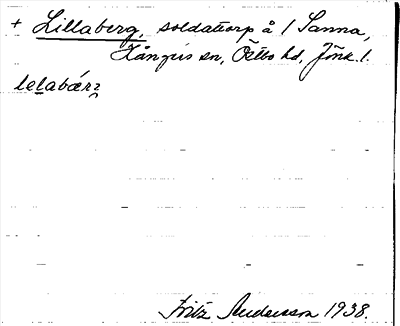 + Lillaberg, soldattorp å 1 Sanna,
Kånna sn, Östbo hd, Jönk. l.
lelabærɂ
Fritz Andersson 1938.